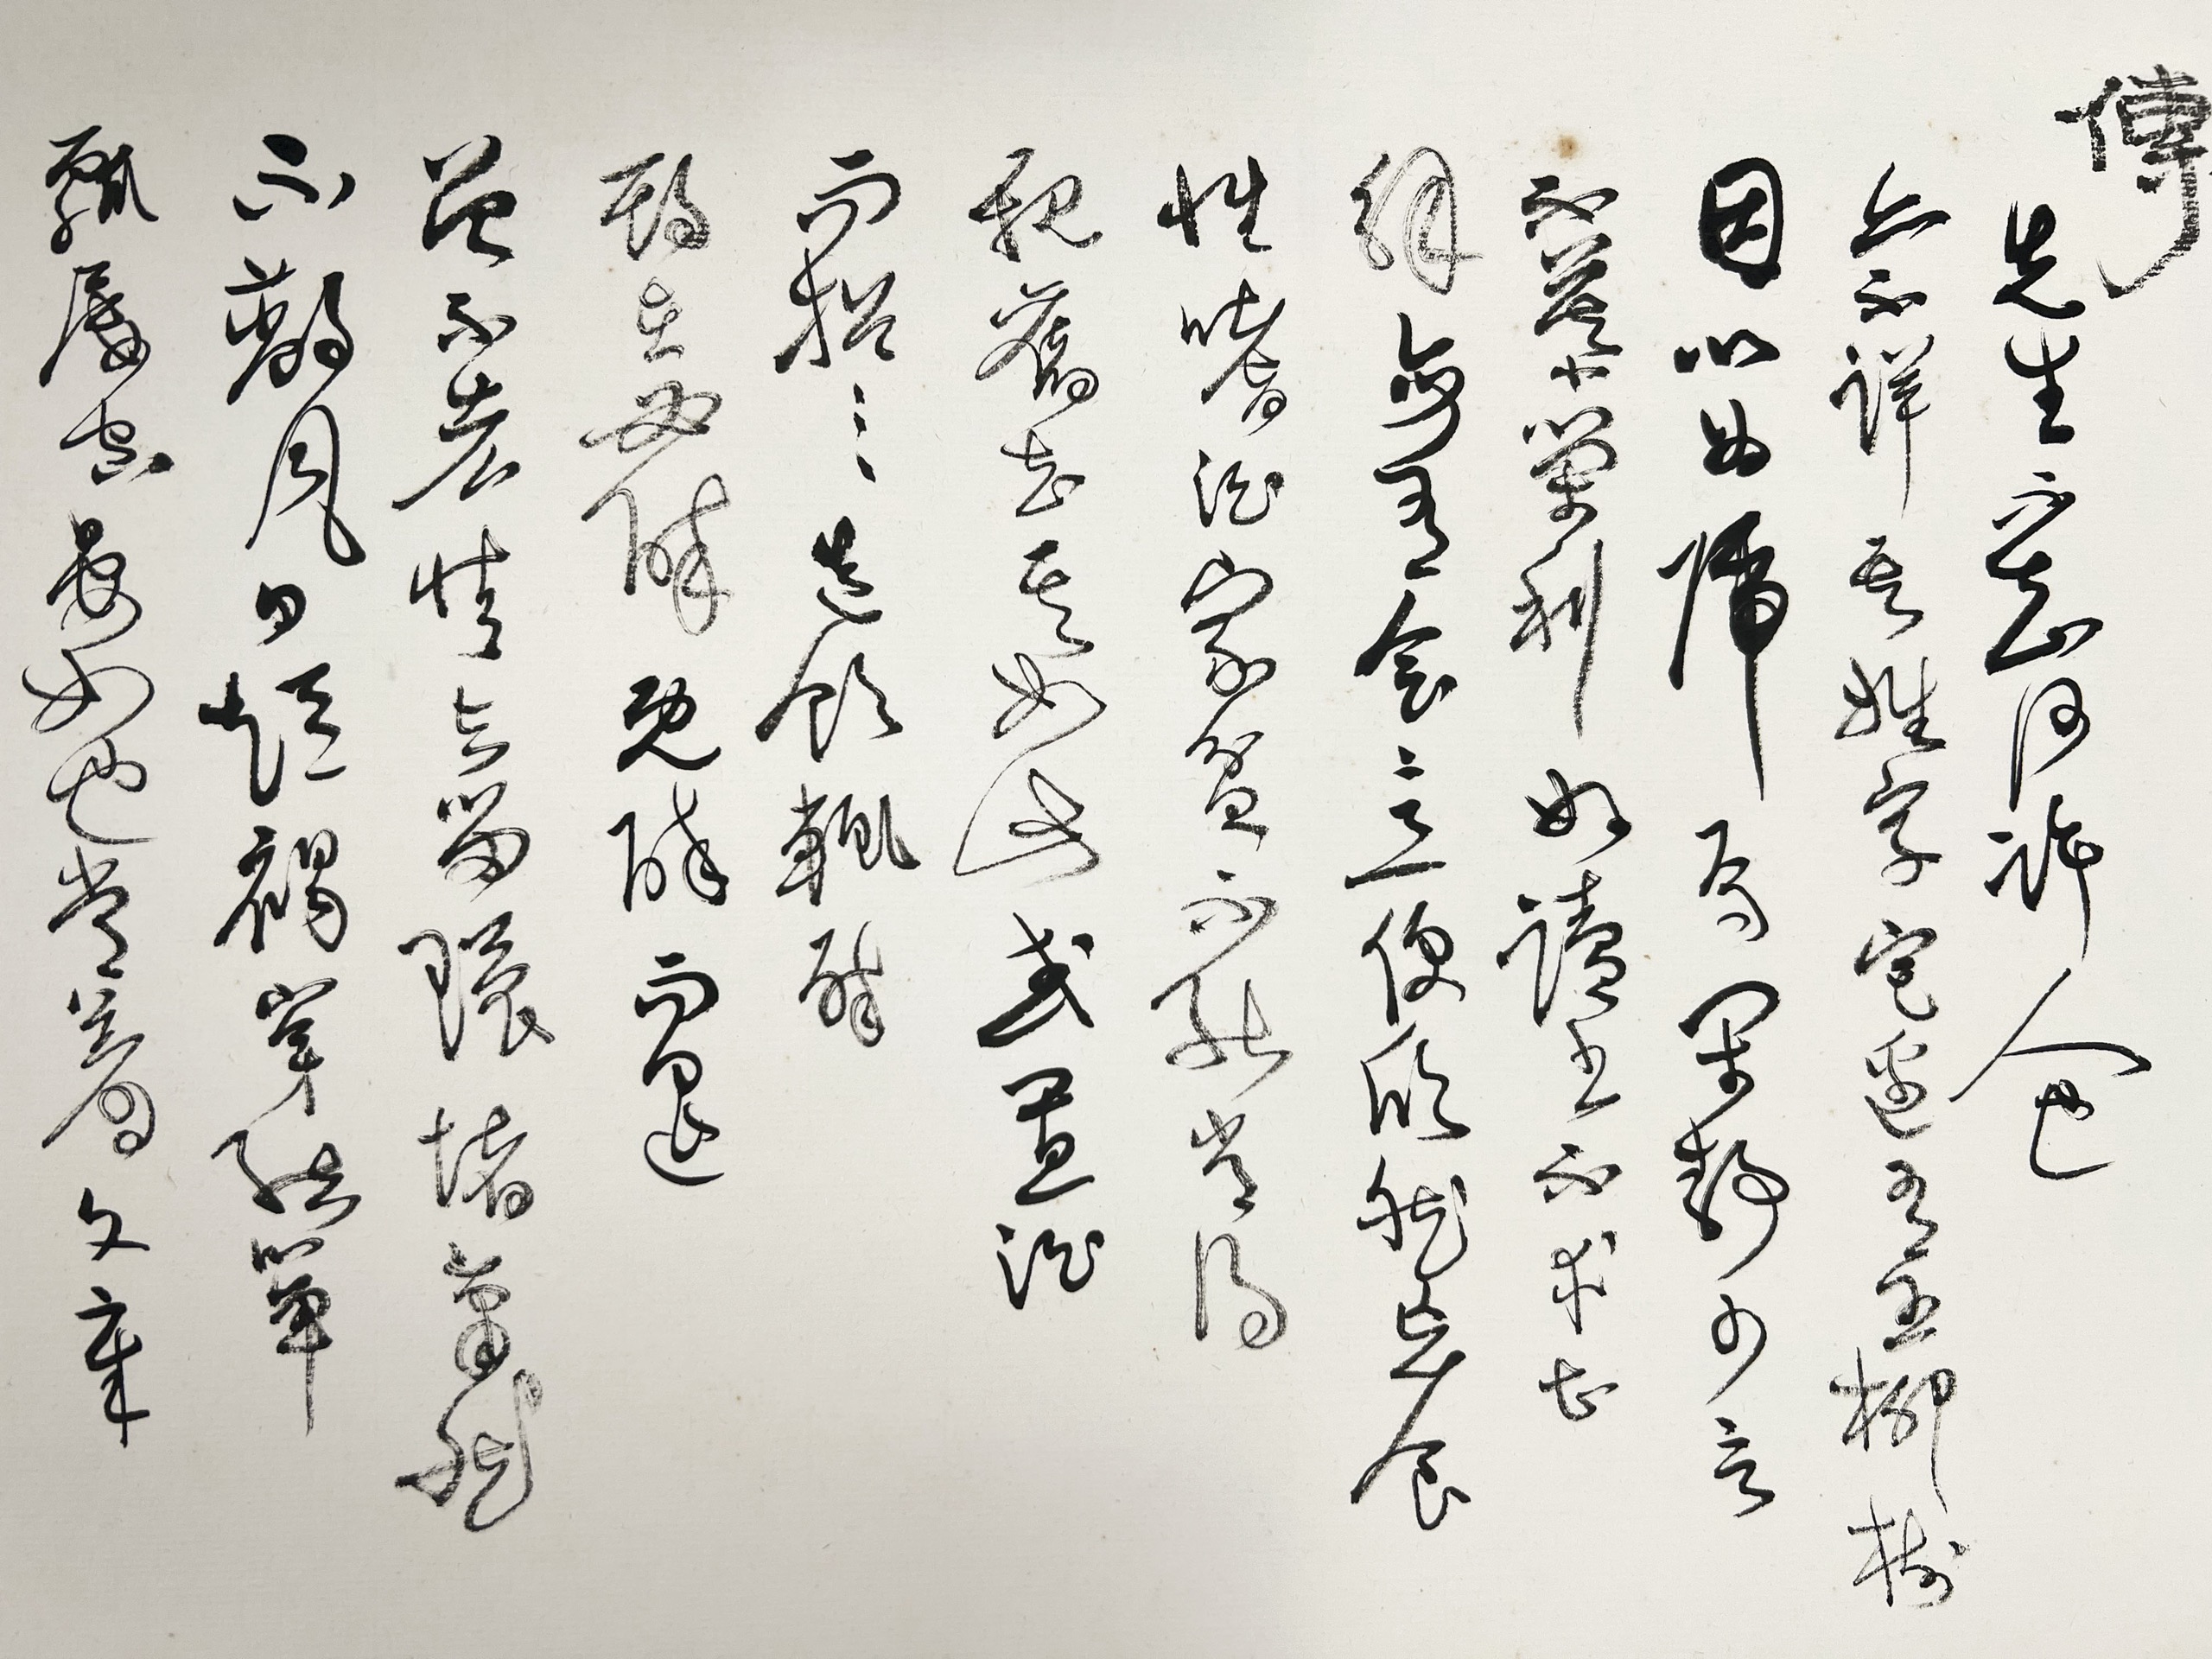 傳
先生不知何許人也
亦不詳其姓字宅邊有五柳樹
因以為號焉閑靜少言
不慕榮利好讀書不求甚
解每有會意便欣然忘食
性嗜酒家貧不能常得
親舊知其如此或置酒
而招之造飲輒醉
期在必醉既醉而退
曾不吝情去留環堵蕭然
不蔽風日短褐穿結簞
瓢屢空晏如也常著文章